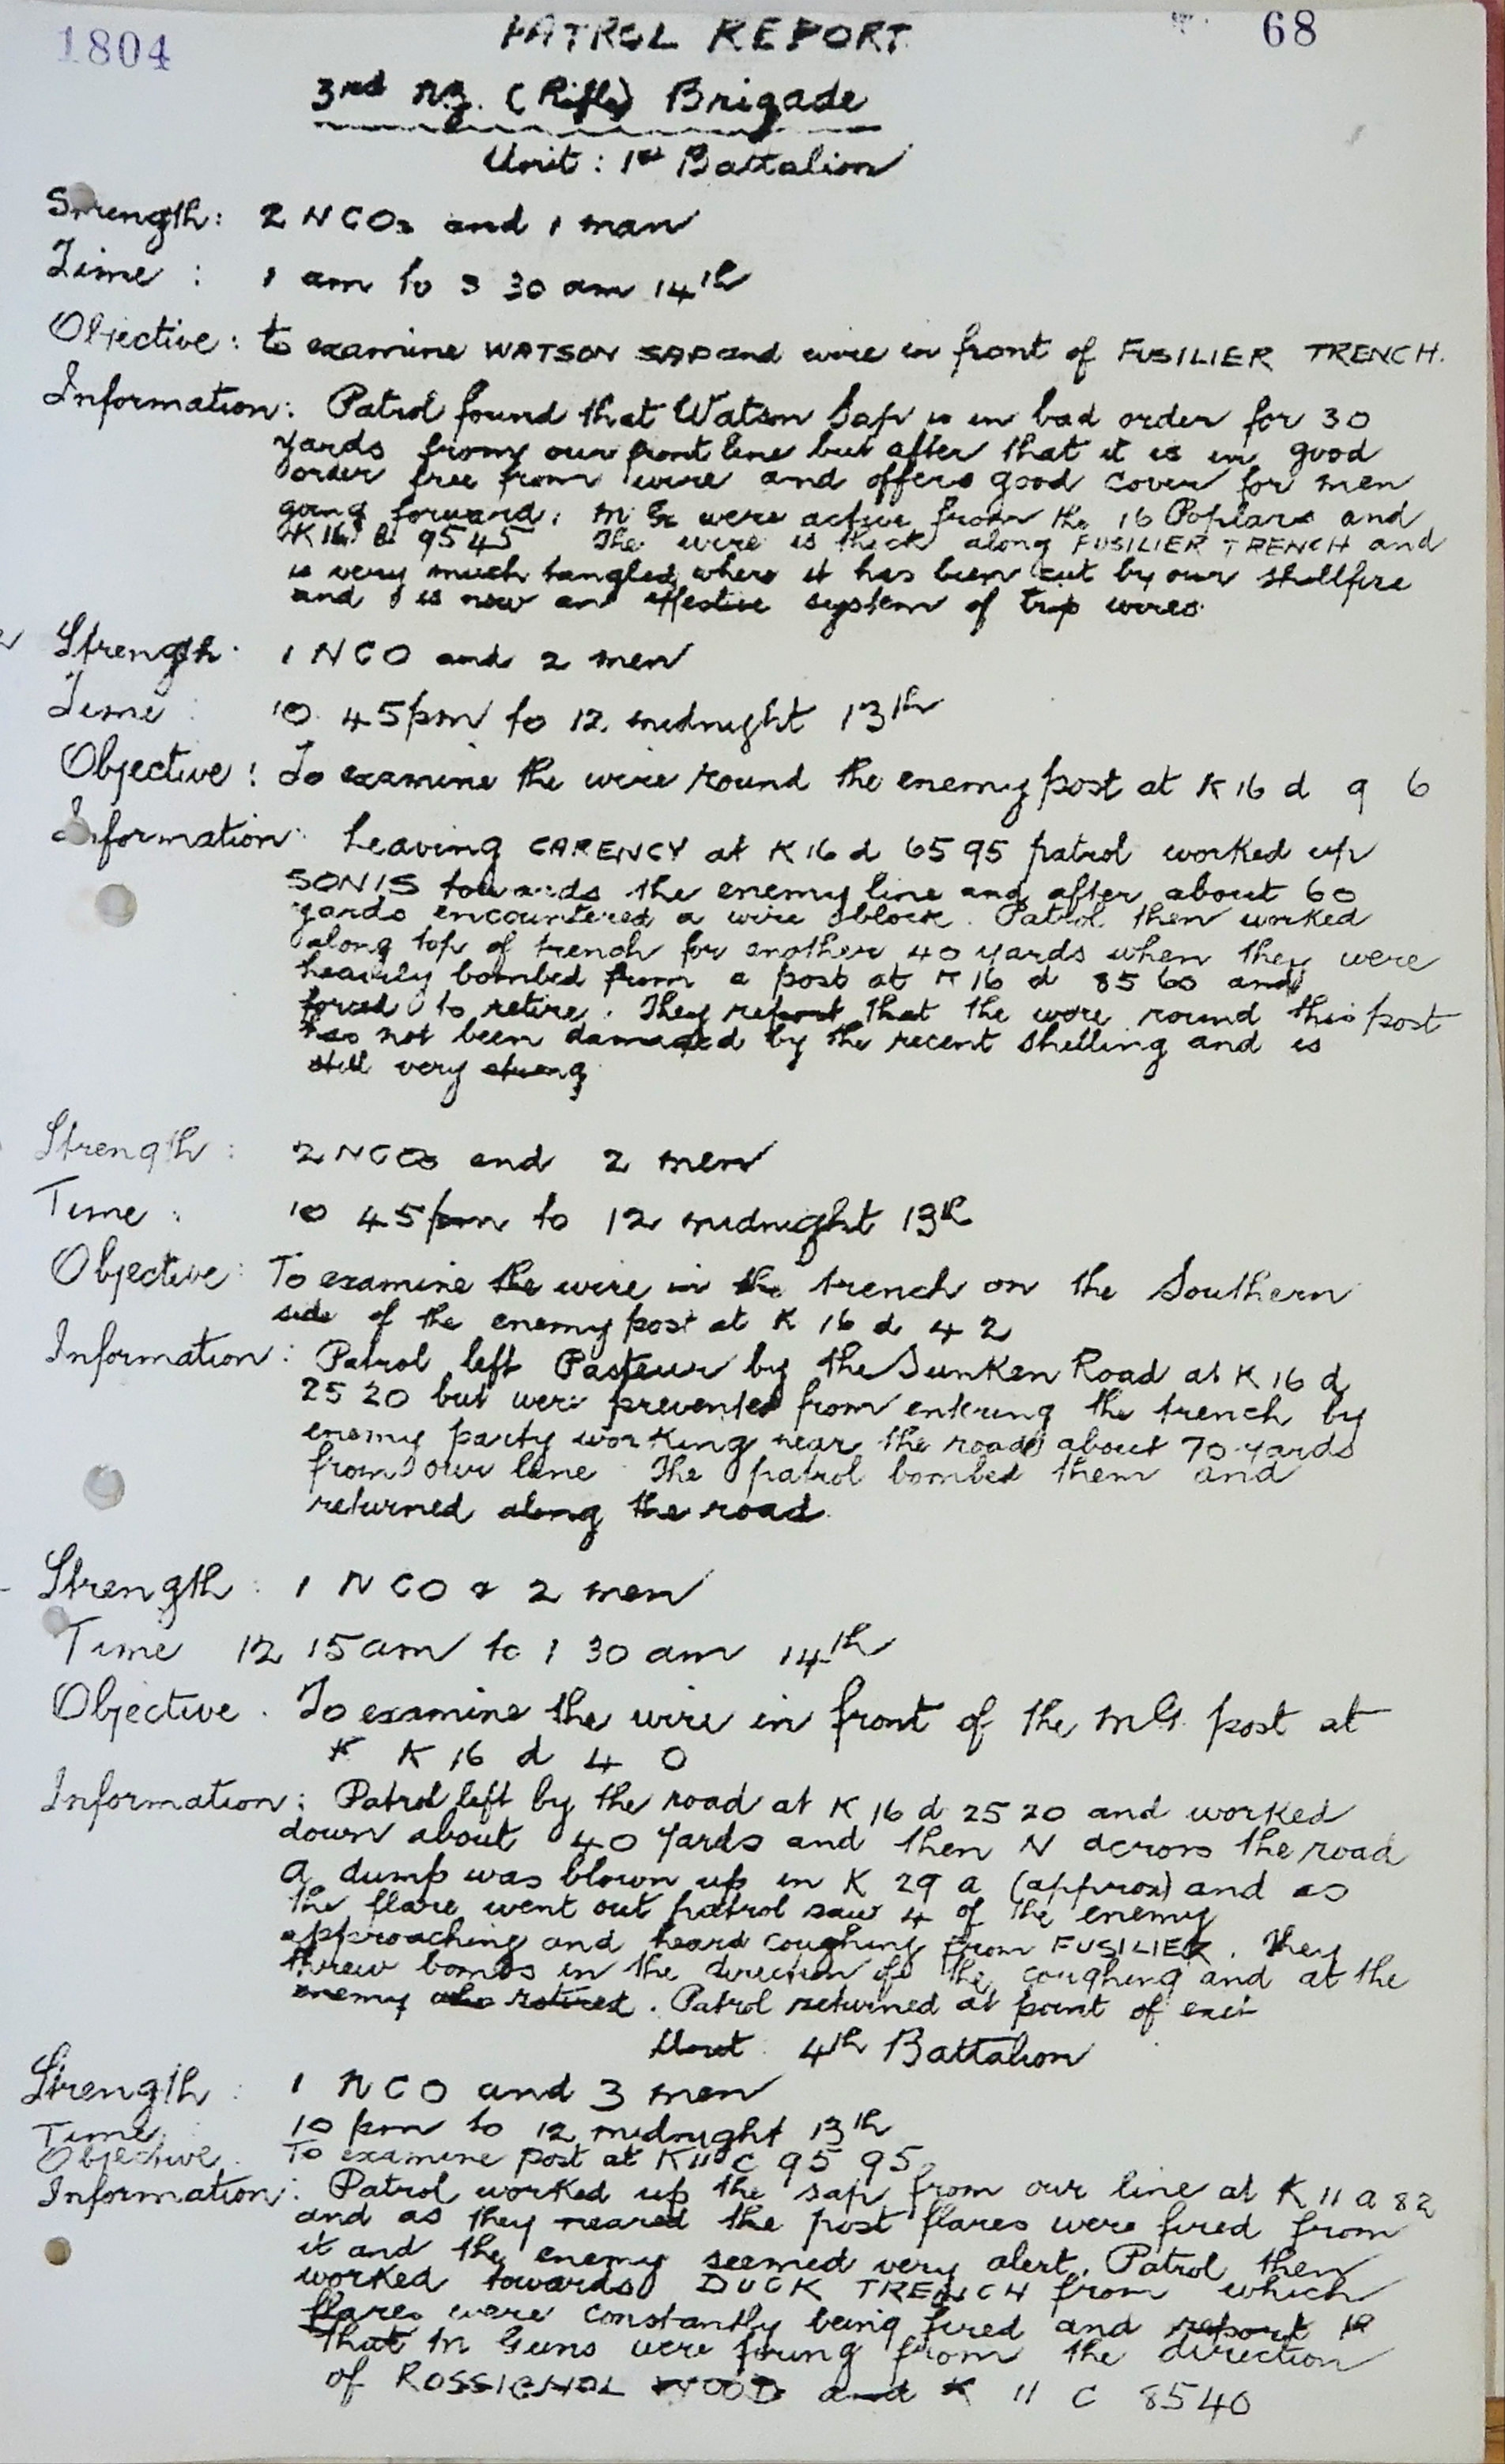 1804
PATROL REPORT
68
3rd NZ. (Rifle) Brigade
Unit: 1st Battalion
Strength: 2 NCOs and 1 man
Time : 1 am to 3 30 am 14th
Objective: to examine WATSON SAP and wire in front of FUSILIER TRENCH.
Information: Patrol found that Watson Sap is in bad order for 30
yards from our front line but after that it is in good
order free from wire and offers good cover for men
going forward. M.G. were active from the 16 Poplars and
K16 9545 The wire is thick along FUSILIER TRENCH and
is very much tangled where it has been cut by our shellfire
and is now an effective system of trip wires
Strength. 1 NCO and 2 men
Time : 10. 45pm to 12. midnight 13th
Objective: To examine the wire round the enemy post at K 16 d 9 6
Information: Leaving CARENCY at K 16 d 65 95 patrol worked up
SONIS towards the enemy line and after about 60
yards encountered a wire block. Patrol then worked
along top of trench for another 40 yards when they were
heavily bombed from a post at K 16 d 85 60 and
forced to retire. They report that the wire round this post
has not been damaged by the recent shelling and is
still very strong
Strength: 2 NCOs and 2 men
Time : 10 45pm to 12 midnight 13th
Objective: To examine the wire in the trench on the Southern
side of the enemy post at K 16 d 4 2
Information: Patrol left Pasteur by the Sunken Road at K 16 d
25 20 but were prevented from entering the trench by
enemy party working near the road about 70 yards
from our line The patrol bombed them and
returned along the road.
Strength : 1 NCO & 2 men
Time 12 15am to 1 30 am 14th
Objective. To examine the wire in front of the MG. post at
K K 16 d 4 0
Information: Patrol left by the road at K 16 d 25 20 and worked
down about 40 yards and then N across the road
A dump was blown up in K 29 a (approx) and as
the flare went out patrol saw 4 of the enemy
approaching and heard coughing from FUSILIER. They
threw bombs in the direction of the coughing and at the
enemy who retired. Patrol returned at point of exit
Unit. 4th Battalion
Strength : 1 NCO and 3 men
Time: 10 pm to 12 midnight 13th
Objective. To examine post at K 11 C 95 95.
Information: Patrol worked up the sap from our line at K 11 a 82
and as they neared the post flares were fired from
it and the enemy seemed very alert. Patrol then
worked towards DUCK TRENCH from which
flares were constantly being fired and report
that M Guns were firing from the direction
of ROSSIGNOL WOOD and K 11 C 8540